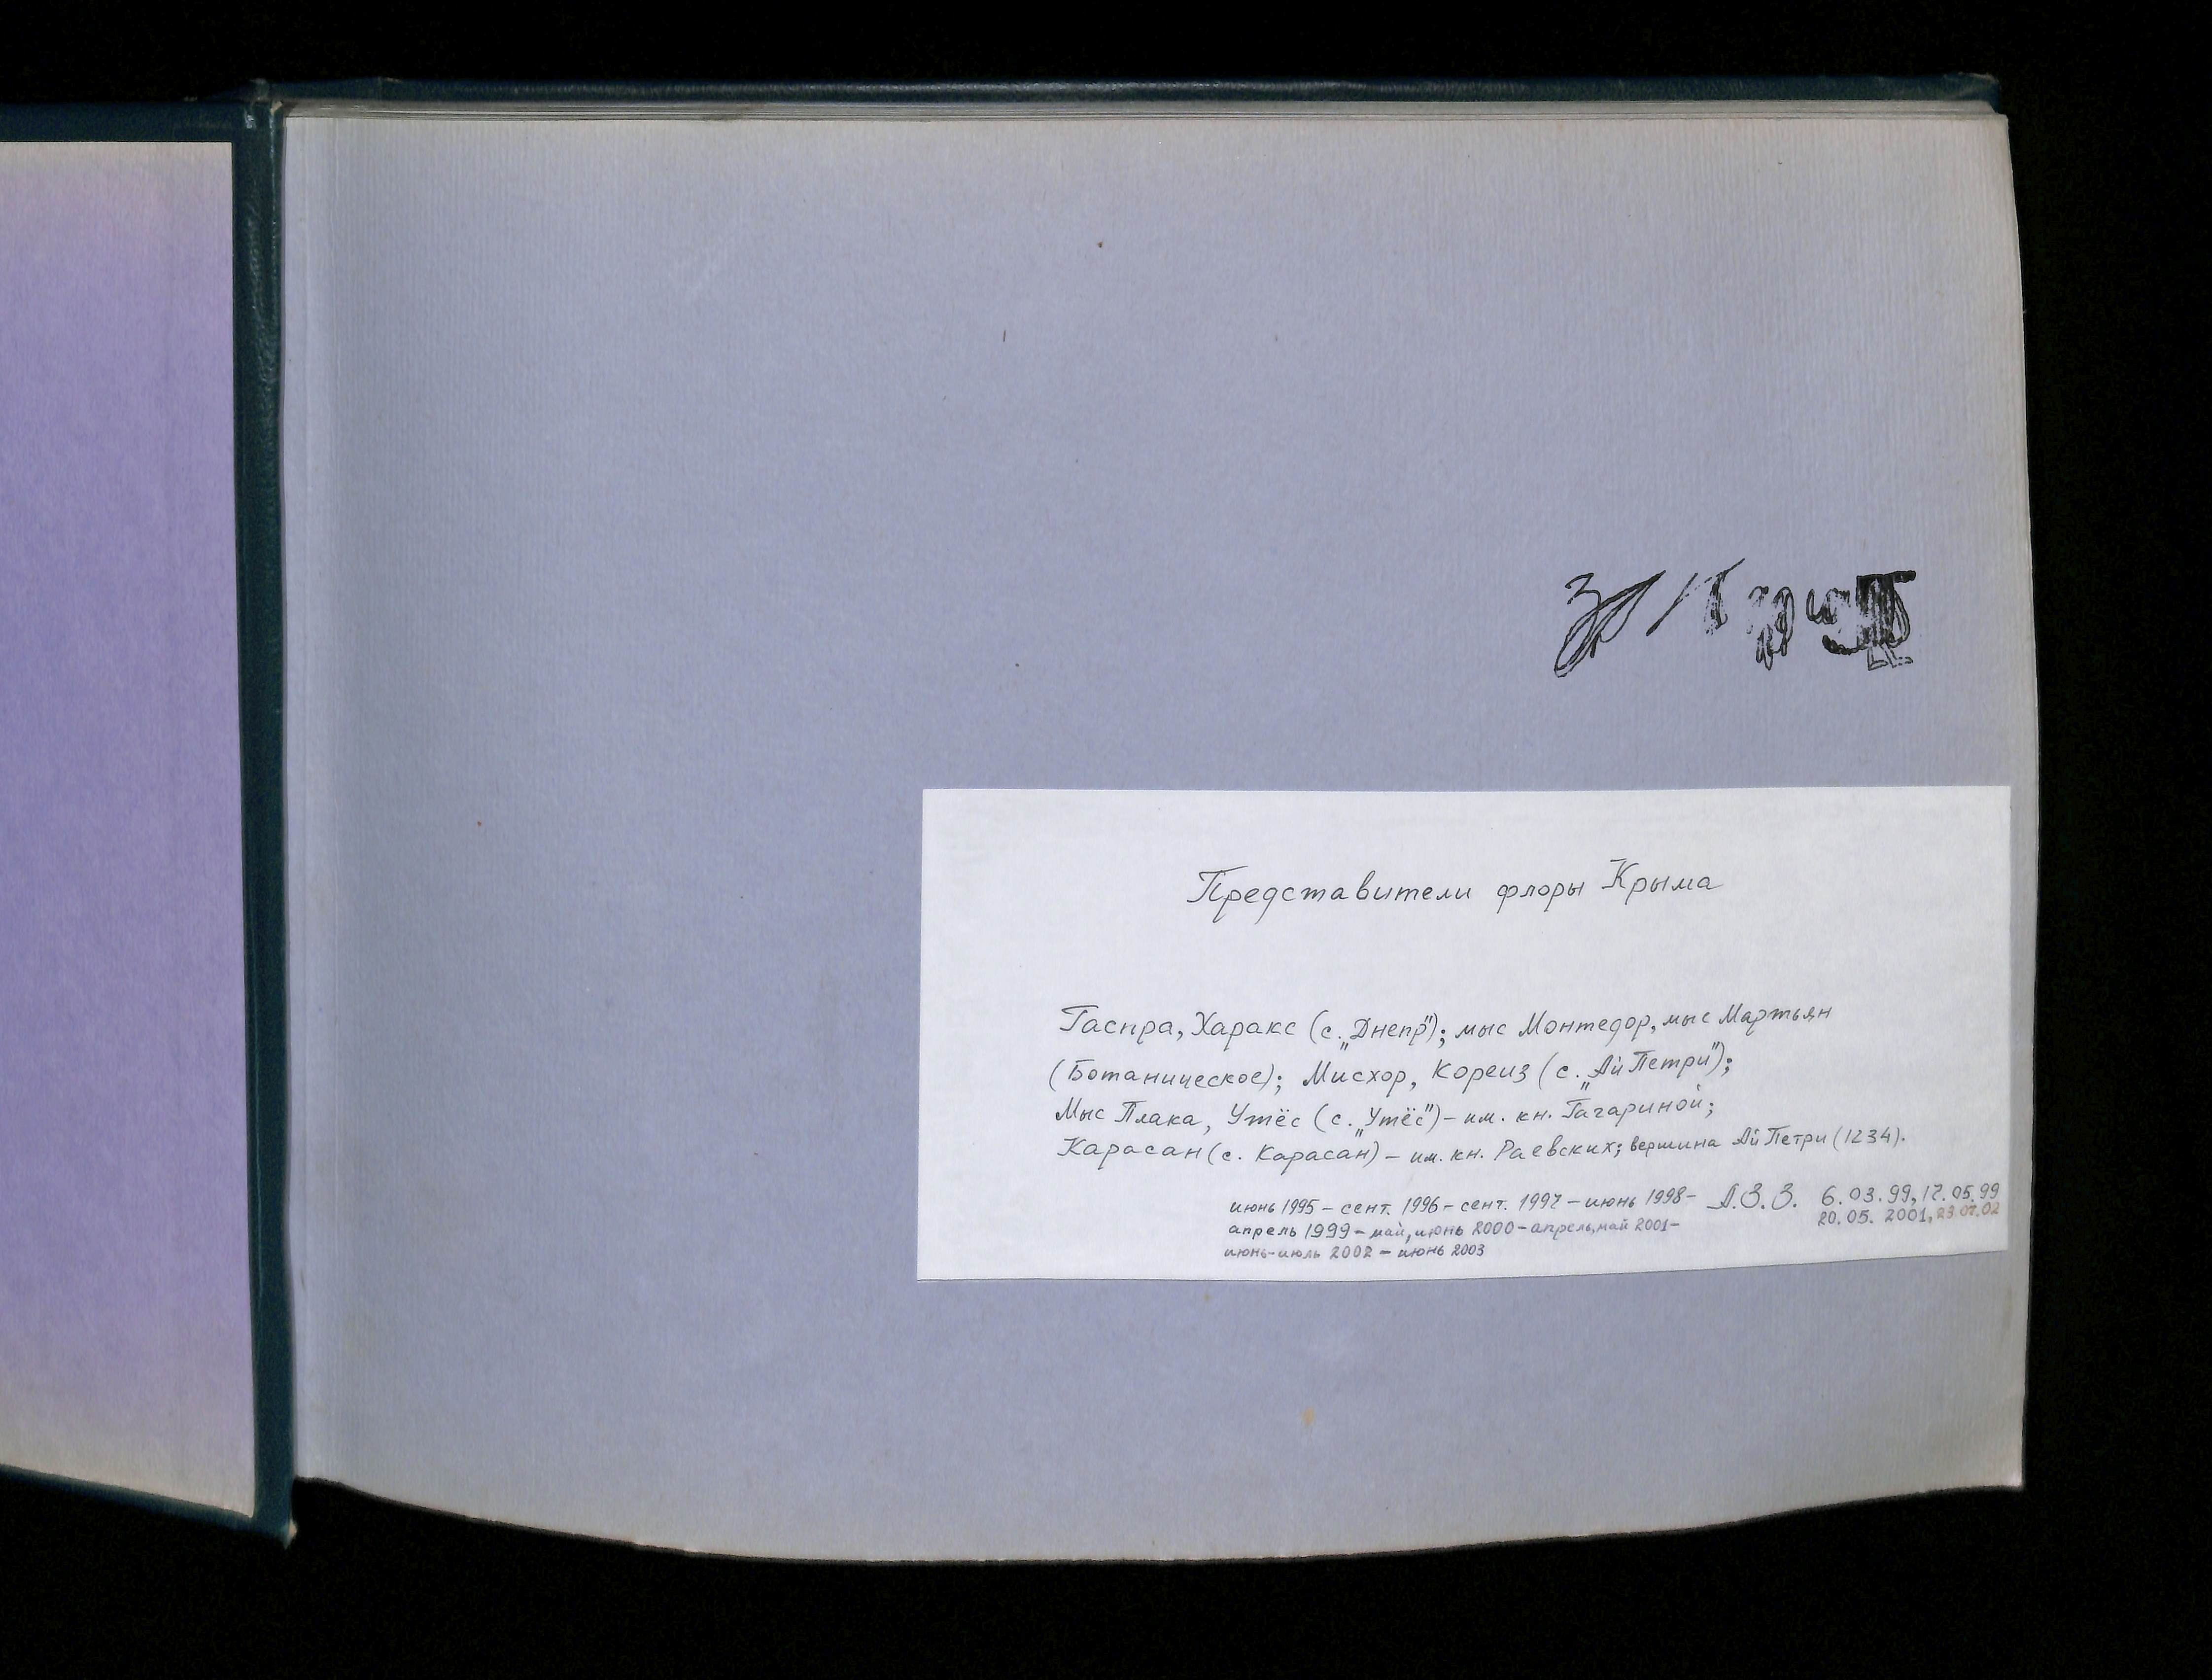 Представители флоры Крыма
Гаспра, Харакс (с. „Днепр"); мыс Монтедор, мыс Мартьян
(Ботаническое); Мисхор, Кореиз (с. „Ай Петри");
Мыс Плака, Утёс (с. „Утёс") – им. кн. Гагариной;
Карасан (с. Карасан) – им. кн. Раевских; вершина Ай Петри (1234).
июнь 1995 – сент. 1996 – сент. 1997 – июнь 1998 – А.З.З. 6.03.99, 17.05.99
апрель 1999 – май, июнь 2000 – апрель, май 2001 – 20.05. 2001, 23.07.02
июнь-июль 2002 – июнь 2003